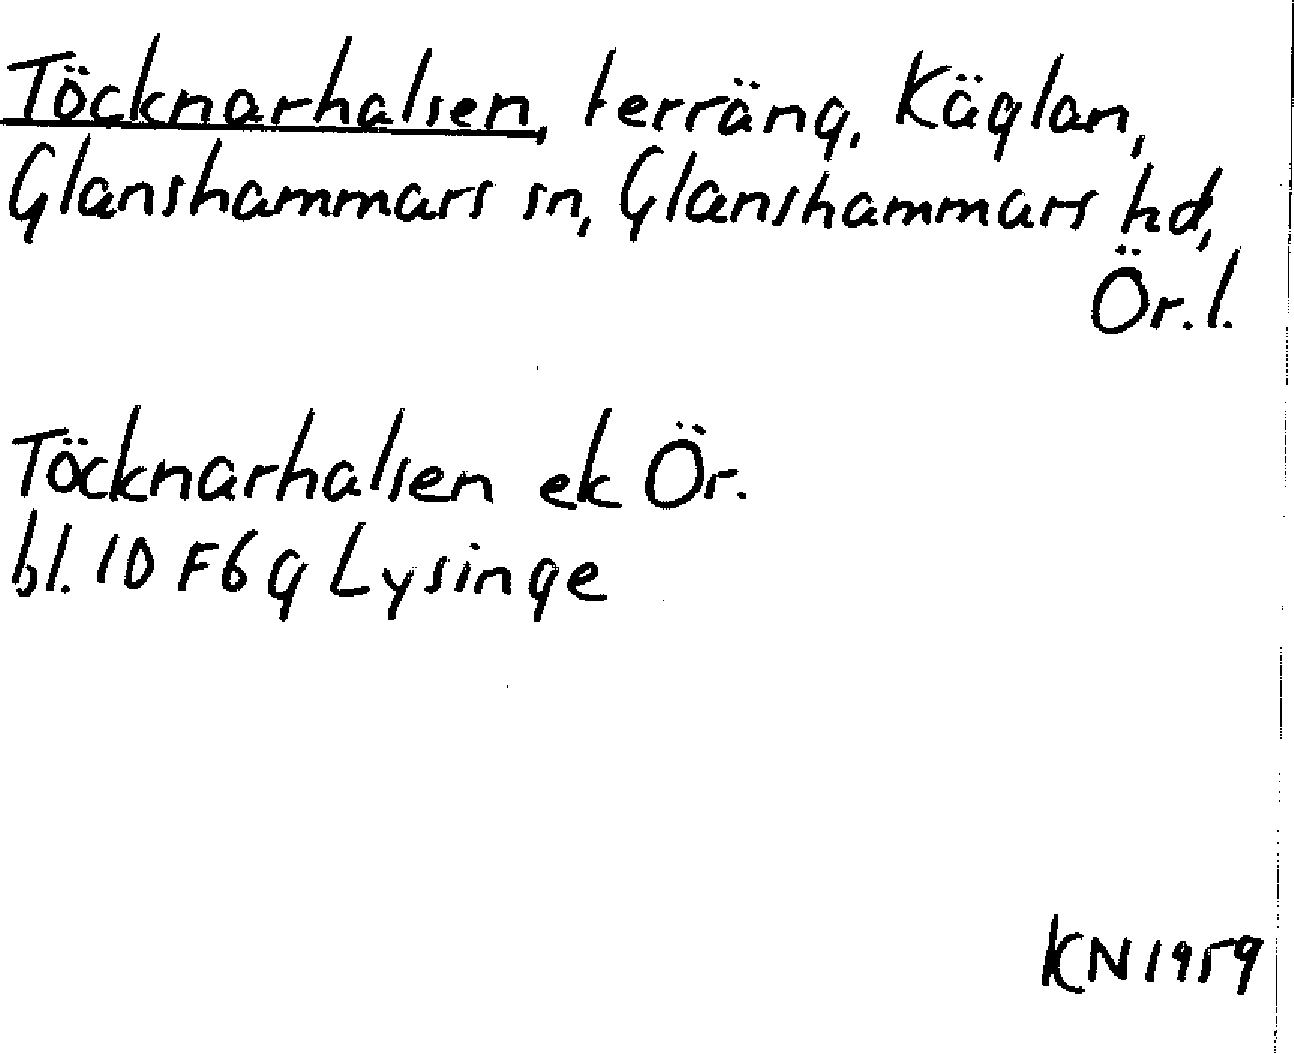 Töcknarhalsen, terräng, Käglan,
Glanshammars sn, Glanshammars hd,
Ör. l.
Töcknarhalsen ek Ör.
bl. 10 F 6 g Lysinge
KN 1959